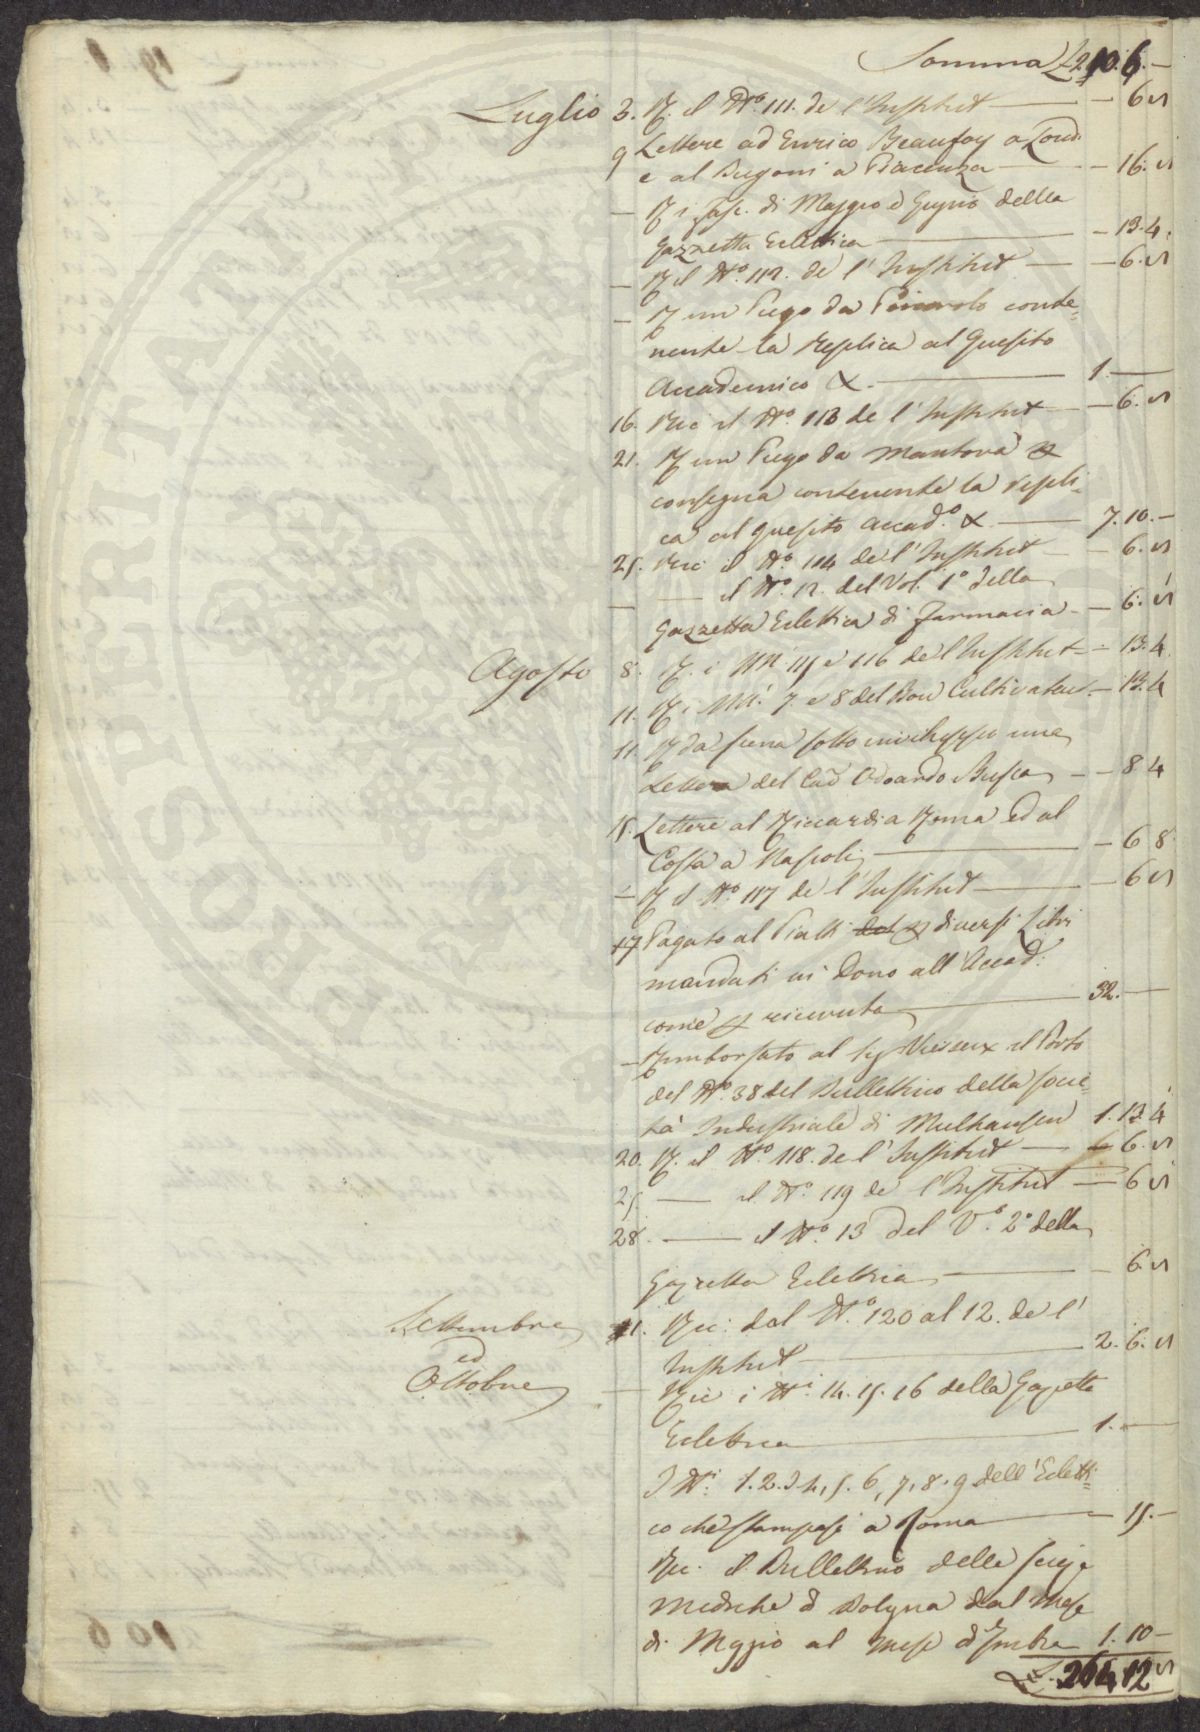 Somma £ 210. 6. —
Luglio 3. R. il N.º 111. de l'Institut — — 6 5
9 Lettere ad Enrico Beaufoy a Lond.
e al Bugoni a Piacenza — — 16. 5
— R i fasc. di Maggio e Giugno della
Gazzetta Eclettica — — 13. 4.
— R il N.º 112. de l'Institut — — 6. 5
— R un Piego da conte=
nente la Replica al Quesito
Accademico &. — 1. —
16. Ric il N.º 113 de l'Institut — — 6. 5
21. R un Piego da Mantova &
consegna contenente la repli=
ca al quesito Accad.º & — 7. 10. —
25. Ric il N.º 114 de l'Institut — — 6. 5
— — il N.º 12. del Vol. 1º della
Gazzetta Eclettica di Farmacia — — 6. 5
Agosto 8. R. i NN 115 e 116 de l'Institut — — 13. 4
11. R i NN.i 7. e 8 del Bon Cultivateur — 13. 4
11. R da Siena sotto inviluppo una
Lettera del Cad Odoardo — — 8 4
15. Lettere al Riccardi a Roma ed al
Costa a Napoli — — 6 8
— R il N.º 117 de l'Institut — — 6 5
17 Pagato al Piatti diversi Libri
mandati in Dono all'Accad.
come ricevuta — 32. —
— Rimborsato al Sig Vieusseux il Porto
del N.º 38 del Bullettino della Socie=
tà Industriale di Mulhausen 1. 13. 4
20. R. il N.º 118. de l'Institut — 6. 5
25 — il N.º 119 de l'Institut — 6 5
28. — il N.º 13 del V.º 2º della
Gazzetta Eclettica — — 6. 5
Settembre
ed
Ottobre
1. Ric: dal N.º 120 al 12. de l'
Institut — 2. 6. 5
— Ric i N.i 14. 15. 16 della Gazzetta
Eclettica — 1. —
I N.i 1. 2. 3. 4, 5. 6, 7, 8. 9 dell'Eclett=
co che stampasi a Roma — — 15. —
Ric. il Bullettino delle Scienze
Mediche di Bologna dal Mese
di Maggio al Mese di 7mbre 1. 10 —
£. 264 12 5